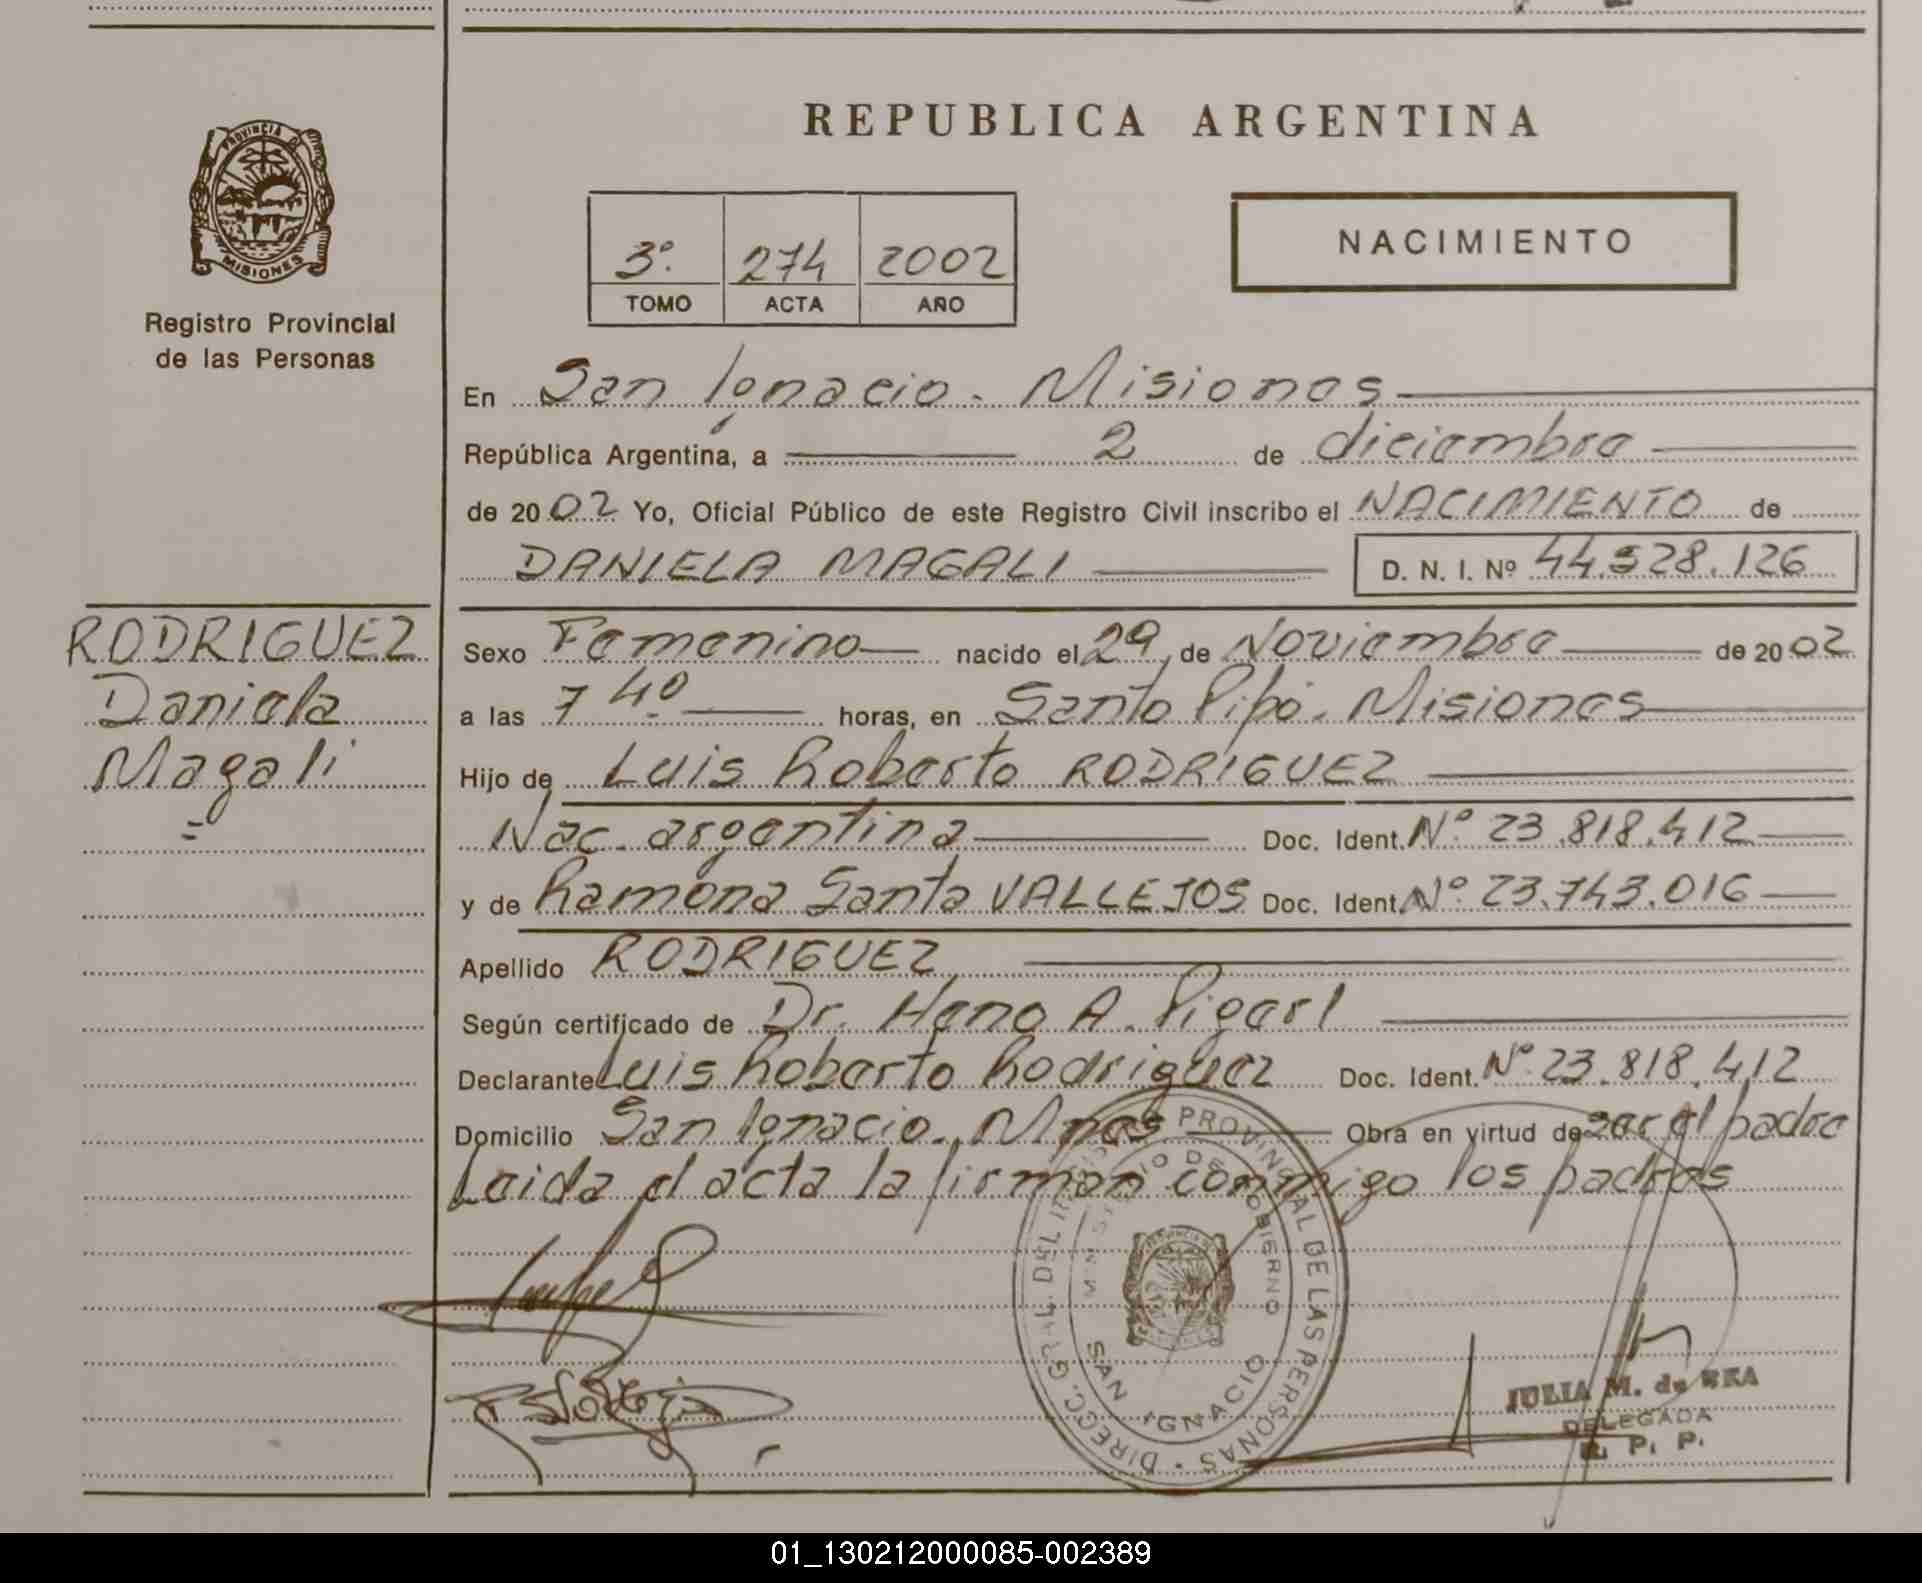 PROVINCIA DE
MISIONES
Registro Provincial
de las Personas
REPUBLICA ARGENTINA
3º. 274 2002
TOMO ACTA AÑO
NACIMIENTO
En San Ignacio - Misiones
República Argentina, a 2 de diciembre
de 2002 Yo, Oficial Público de este Registro Civil inscribo el NACIMIENTO de
DANIELA MAGALI D. N. I. Nº 44.528.126
RODRIGUEZ
Daniela
Magali
=
Sexo Femenino nacido el 29 de Noviembre de 2002
a las 7 40 horas, en Santo Pipó. Misiones
Hijo de Luis Roberto RODRIGUEZ
Nac. argentina Doc. Ident. Nº 23.818.412
y de Ramona Santa VALLEJOS Doc. Ident. Nº 23.743.016
Apellido RODRIGUEZ
Según certificado de Dr. A.
Declarante Luis Roberto Rodriguez Doc. Ident. Nº 23.818.412
Domicilio San Ignacio. Mnes Obra en virtud de ser el padre
Leida el acta la firman conmigo los padres
DIRECC. GRAL. DEL PROVINCIAL DE LAS PERSONAS
MINISTERIO DE GOBIERNO
SAN IGNACIO
JULIA M. de
DELEGADA
R. P. P.
01_130212000085-002389